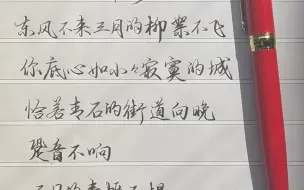 东风不来三月的柳絮不飞
你底心如小小寂寞的城
恰若青石的街道向晚
跫音不响